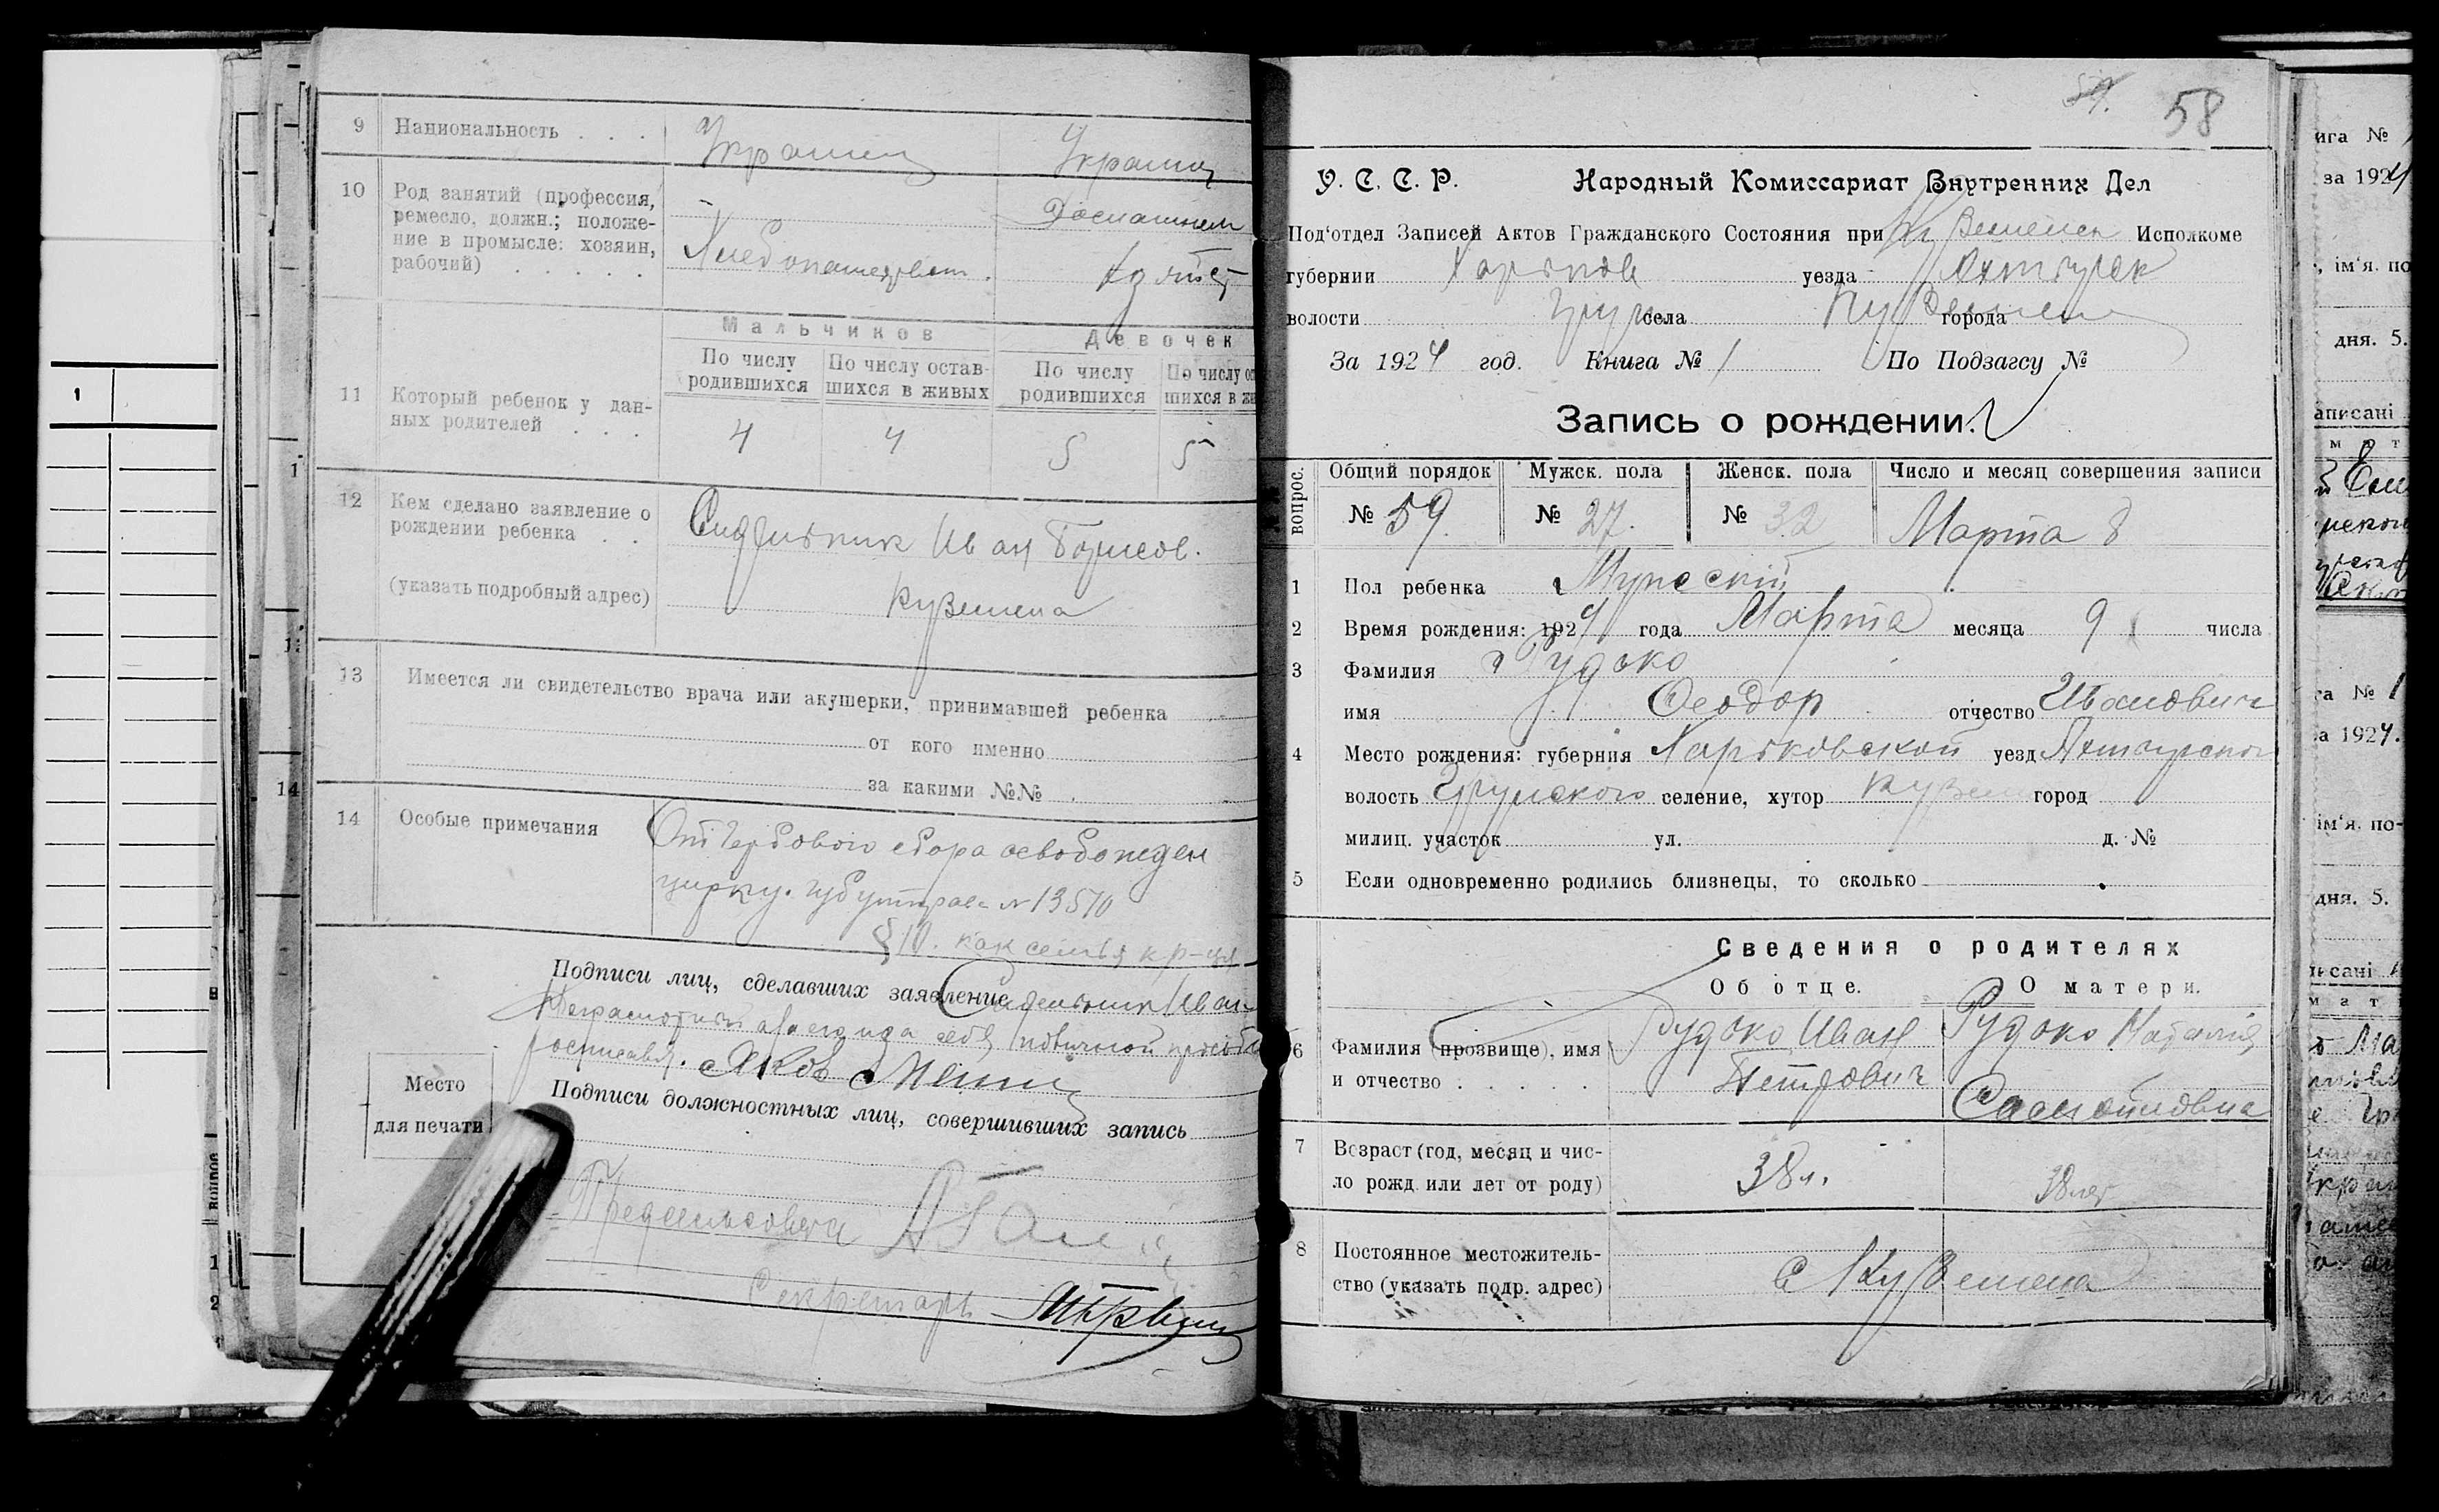 9 Национальность . . . Украинец Украинц
10 Род занятий (профессия,
ремесло, должн.; положе-
ние в промысле: хозяин,
рабочий) . . . . .
Хлебопашество. Домашнем
Хозяйст
11 Который ребенок у дан-
ных родителей . . .
Мальчиков Девочек
По числу родившихся По числу остав-шихся в живых По числу родившихся По числу
4 4 5 5
12 Кем сделано заявление о
рождении ребенка . .
(указать подробный адрес)
Сидельник Иван Борисов.
Куземена
13 Имеется ли свидетельство врача или акушерки, принимавшей ребенка
от кого именно
за какими №№
14 Особые примечания
От гербового сбора освобожден
цирку. № 13570
§ 10. как семья кр-ця
Подписи лиц, сделавших заявление Сидельник Иван
Неграмотный а за него и за себя по личной просьбе
росписался. Яков
Место
для печати
Подписи должностных лиц, совершивших запись
Предсельсовета
Секретарь
59. 58
У. С. С. Р. Народный Комиссариат Внутренних Дел
Под‘отдел Записей Актов Гражданского Состояния при Куземенск Исполкоме
губернии Харьков уезда Ахтырск
волости Грун села Куземена города
За 1924 год. Книга № 1 По Подзагсу №
Запись о рождении.
вопрос. Общий порядок Мужск. пола Женск. пола Число и месяц совершения записи
№ 59. № 27. № 32 Марта 8
1 Пол ребенка Мужской
2 Время рождения: 1924 года Марта месяца 9 числа
3 Фамилия Рудько
имя Феодор отчество Иванович
4 Место рождения: губерния Харьковской уезд Ахтырского
волость Грунского селение, хутор Куземе город
милиц. участок ул. д. №
5 Если одновременно родились близнецы, то сколько
Сведения о родителях
Об отце. О матери.
6 Фамилия (прозвище), имя
и отчество . . . .
Рудько Иван
Петрович
Рудько Наталия
Самойловна
7 Возраст (год, месяц и чис-
ло рожд. или лет от роду)
38 л. 38 лет
8 Постоянное местожитель-
ство (указать подр. адрес)
с Куземена